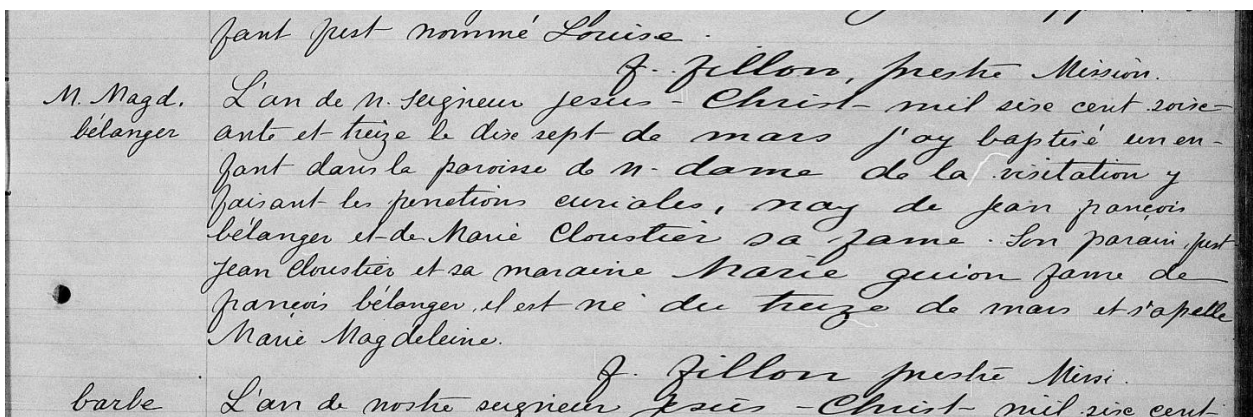 fant fust nommé Louise.
f. fillon, prestre Mission.
M. Magd. L'an de N. seigneur Jesus-Christ mil sise cent soixe-
bélanger ante et treize le dixe sept de mars j'ay baptisé un en-
fant dans la paroisse de N. dame de la visitation y
faisant les fonctions curiales, nay de Jean françois
bélanger et de Marie Cloustier sa fame. Son parain fust
Jean Cloustier et sa maraine Marie guion fame de
françois bélanger, il est né du treize de mars et s'apelle
Marie Magdeleine.
f. fillon prestre Missi.
barbe L'an de nostre seigneur Jesus-Christ mil sise cent